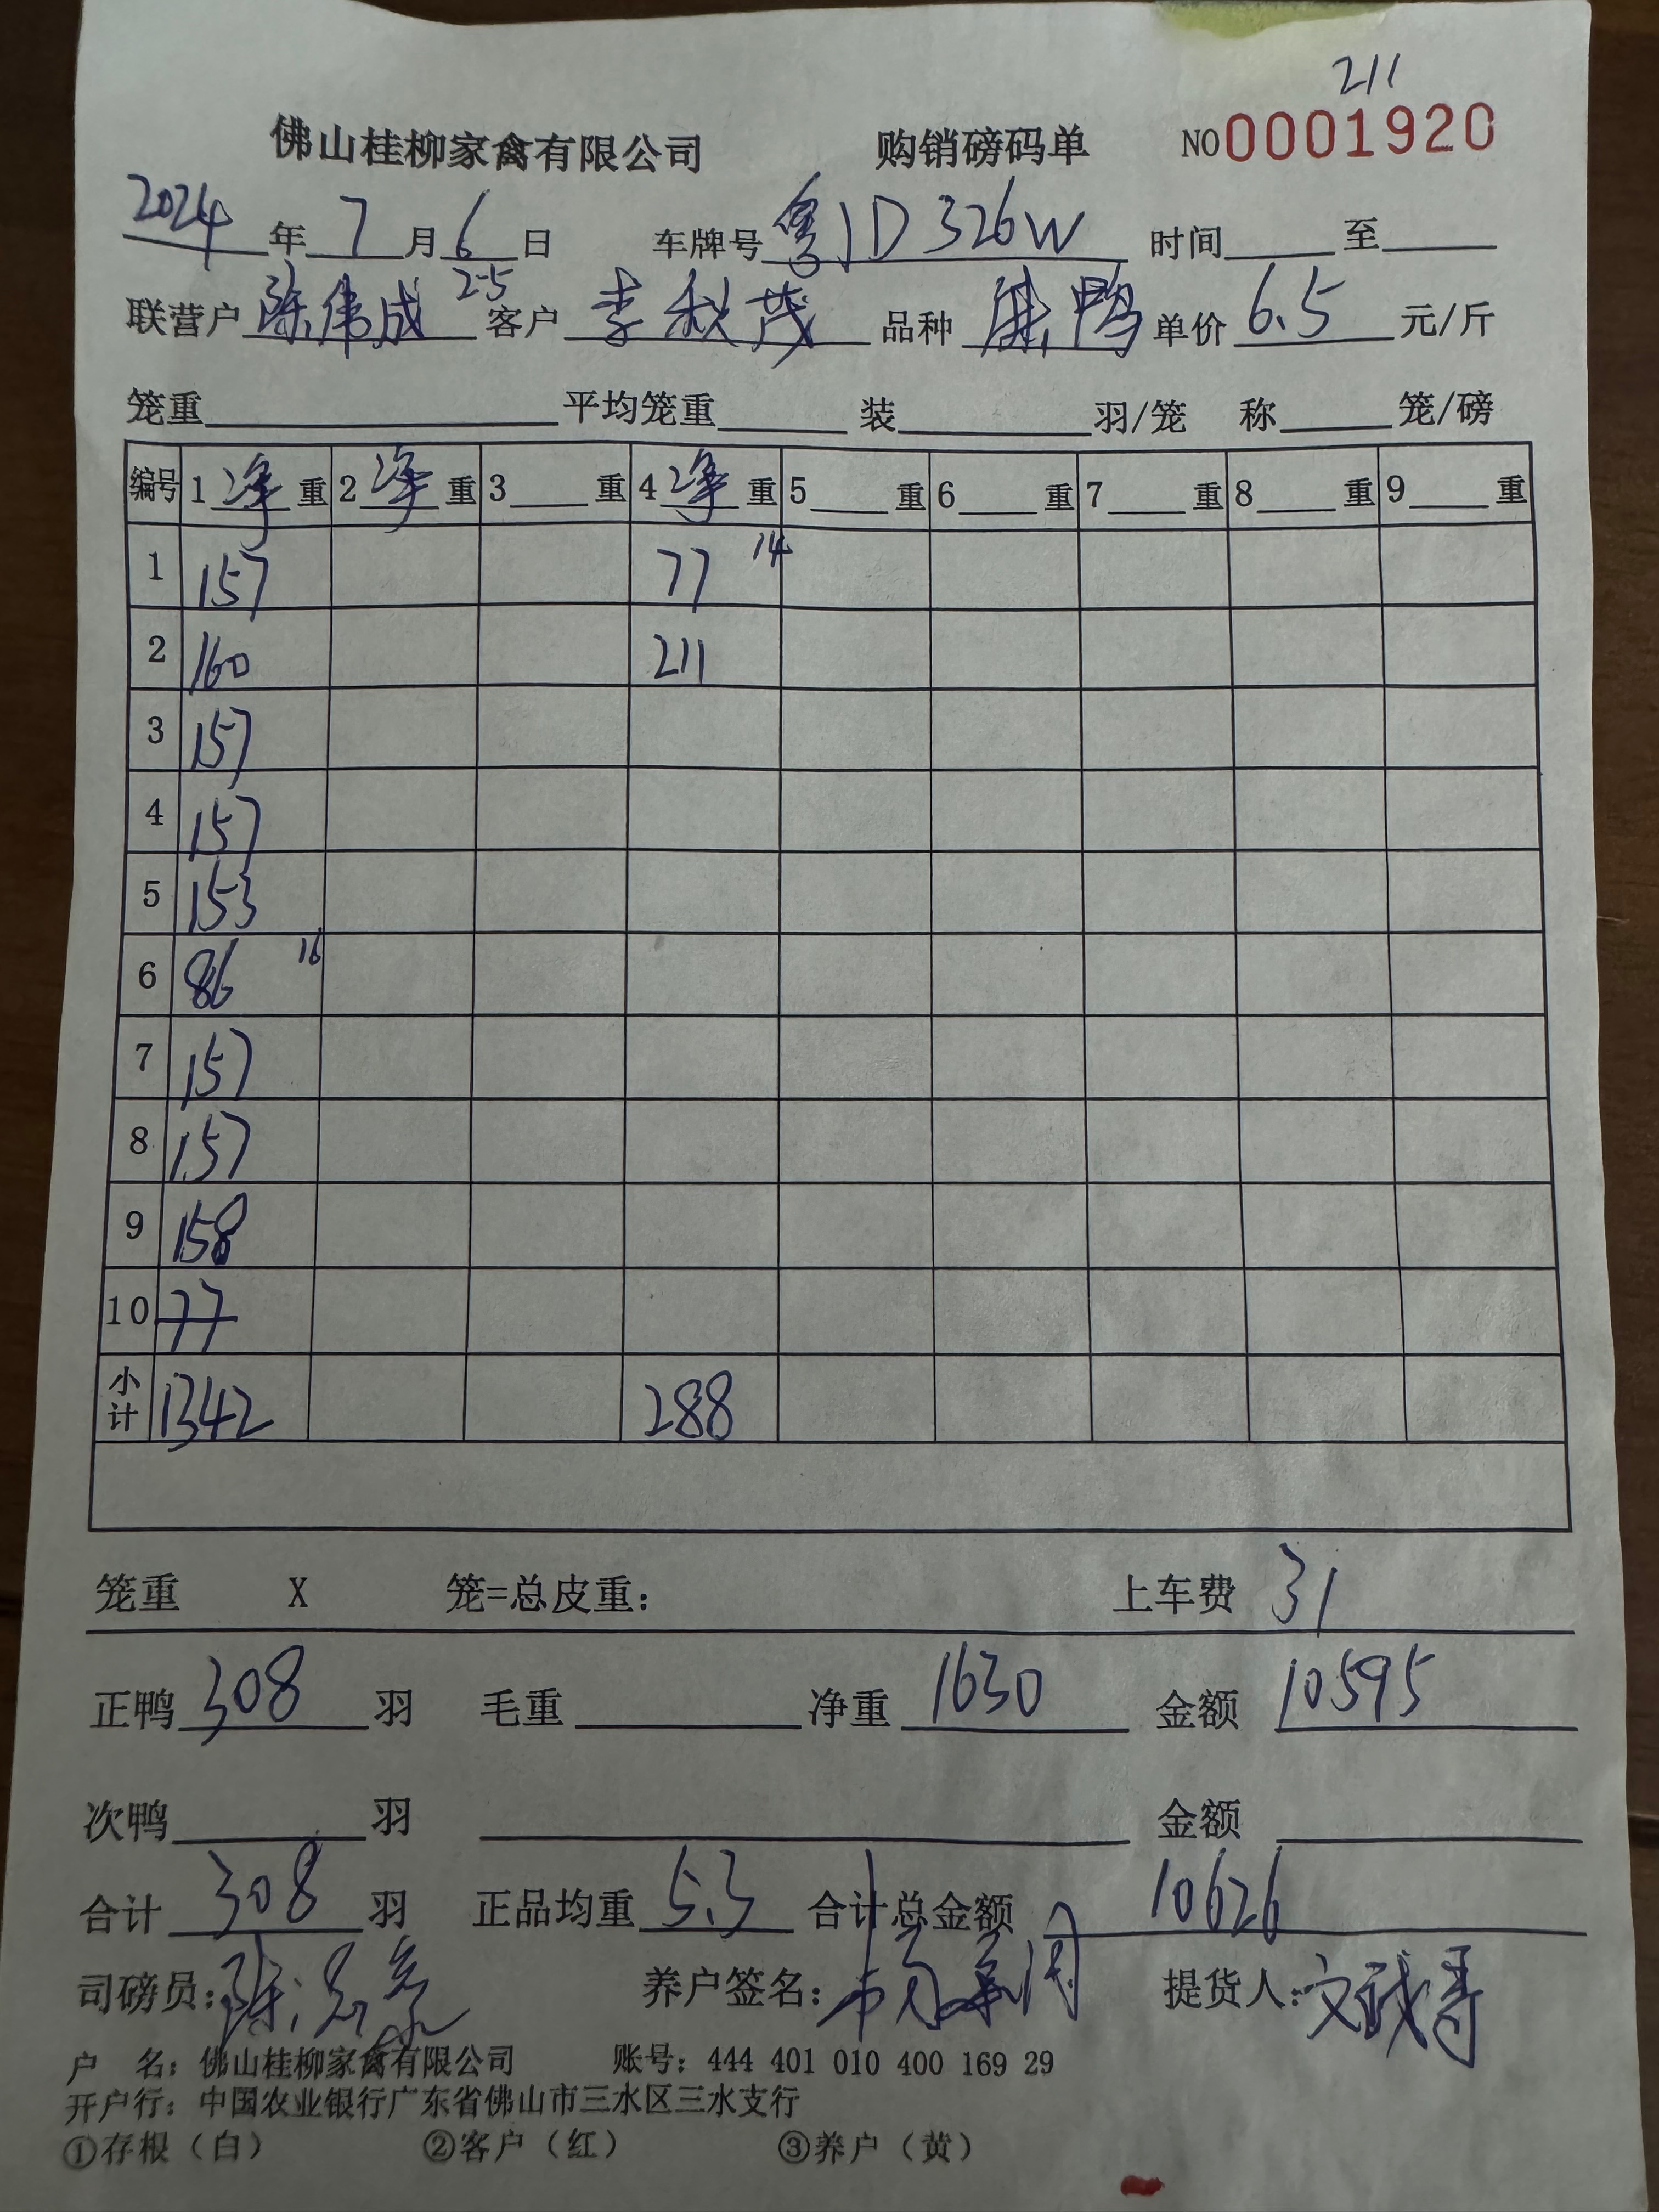 211
佛山桂柳家禽有限公司 购销磅码单 NO0001920
2024年7月6日 车牌号粤JD326W 时间 至
联营户陈伟成25 客户李秋茂 品种 鸭 单价6.5元/斤
笼重 平均笼重 装 羽/笼 称 笼/磅
编号 1净重 2净重 3 重 4净重 5 重 6 重 7 重 8 重 9 重
1 157 77 14
2 160 211
3 157
4 157
5 153
6 86 16
7 157
8 157
9 158
10 77
小计 1342 288
笼重 X 笼=总皮重: 上车费 31
正鸭308羽 毛重 净重1630 金额10595
次鸭 羽 金额
合计308羽 正品均重5.3 合计总金额10626
司磅员: 养户签名: 提货人:
户 名: 佛山桂柳家禽有限公司 账号: 444 401 010 400 169 29
开户行: 中国农业银行广东省佛山市三水区三水支行
①存根(白) ②客户(红) ③养户(黄)